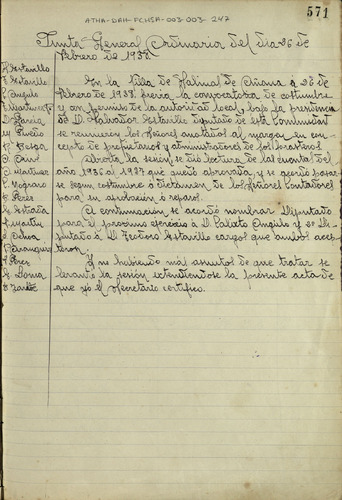 571
ATHA-DAH-FCNSA-003-003-247
Junta General Ordinaria del dia 26 de
Febrero de 1938.
En la Villa de Salinas de Añana a 26 de
Febrero de 1938 previa la convocatoria de costumbre
y con permiso de la autoridad local, bajo la presidencia
de D. Salvador Estavillo diputado de esta Comunidad
se reunieron los Señores anotados al margen en con-
cepto de propietarios y administradores de
Abierta la sesión, se dio lectura de las cuentas del
año 1936 al 1937 que quedo aprovada y se acordo pasar-
se segun costumbre á dictamen de los Señores Contadores
para su aprovación ó reparos.
A continuación se acordó nombrar Diputado
para el proximo egercicio á D. Calixto Angulo y 2º Di-
putado á D. Teodoro Estavillo cargos que ambos acep-
taron.
Y no habiendo más asuntos de que tratar se
levanta la sesión extendiendose la presente acta de
que yó el Secretario certifico.
S. Estavillo
T. Estavillo
C. Angulo
D. García
M. Pinedo
V. Martinez
E. Perez